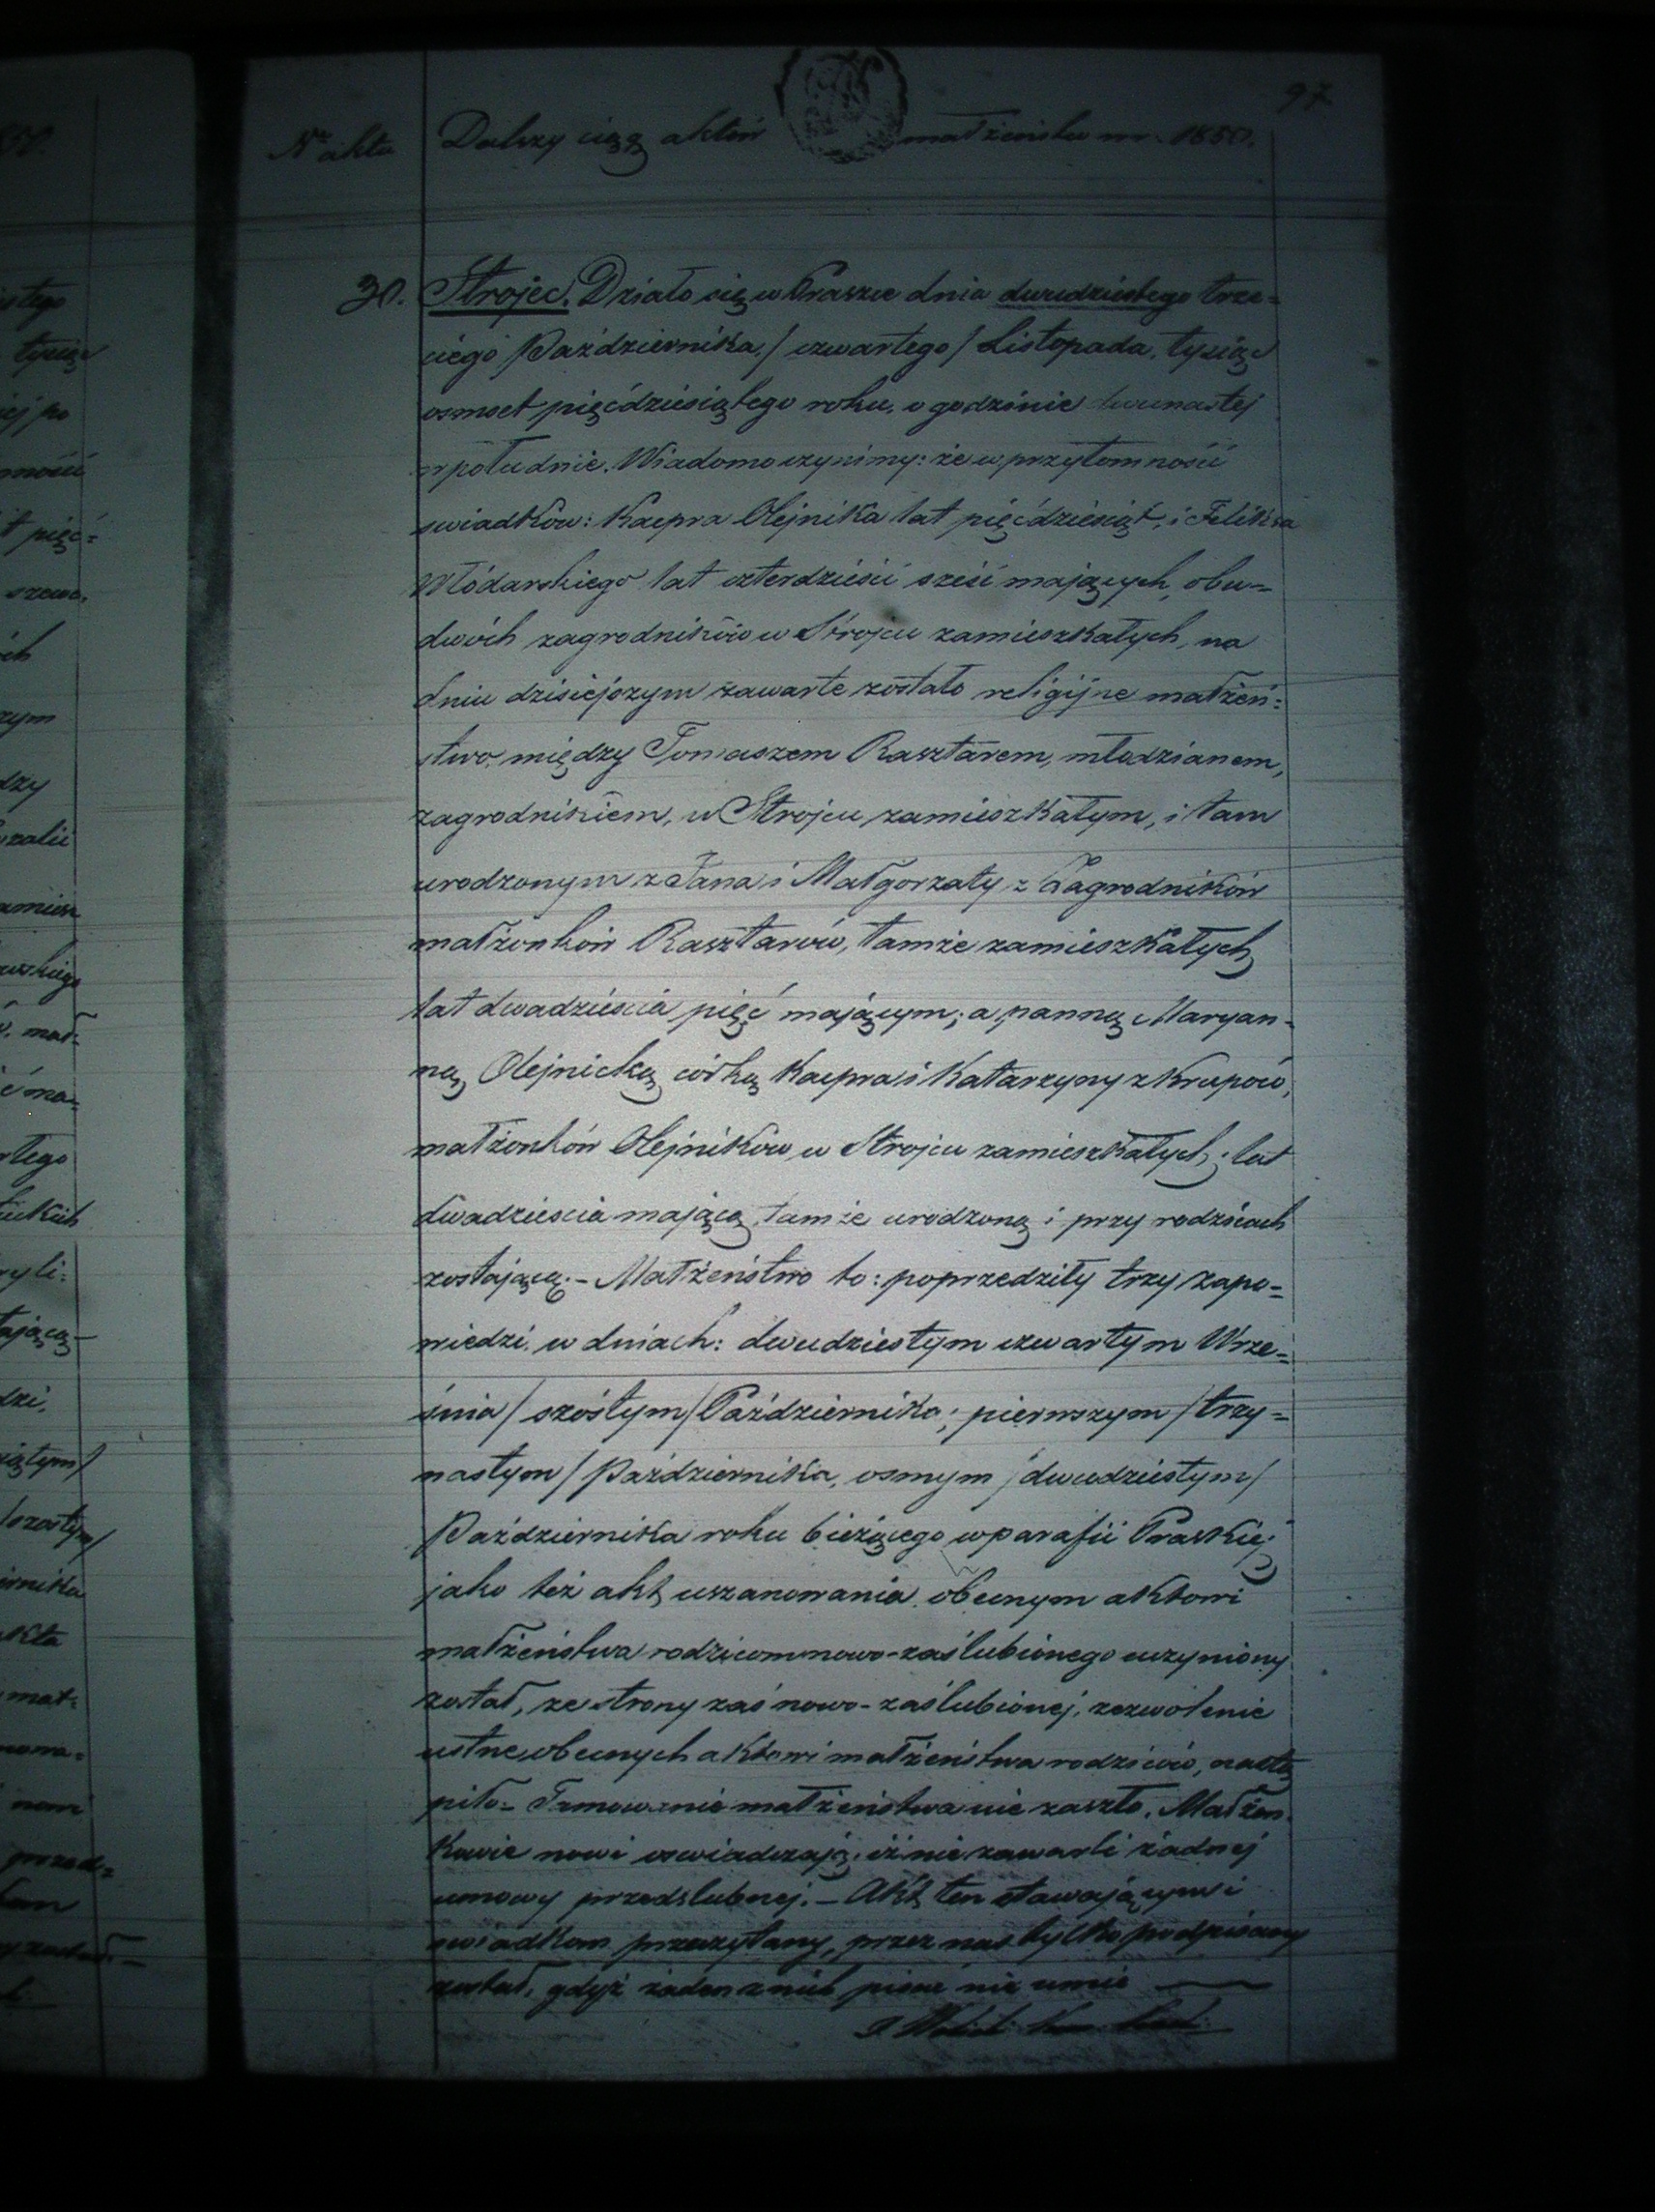 97
Nr akta Dalszy ciąg aktów małżeństw nr. 1850.
30. Strojec. Działo się w Praszce dnia dwudziestego trze-
ciego Października / czwartego / Listopada, tysiąc
osmset pięćdziesiątego roku, o godzinie dwunastej
w południe. Wiadomo czynimy: że w przytomności
swiadków: Kacpra Olejnika lat pięćdziesiąt, i Felixa
Włódarskiego lat czterdzieści sześć mających, obu-
dwóch zagrodników w Strojcu zamieszkałych, na
dniu dzisiejszym zawarte zostało religijne małżeń-
stwo, między Tomaszem Rasztarem, młodzianem,
zagrodnikiem, w Strojcu zamieszkałym, i tam
urodzonym z Jana i Małgorzaty z Zagrodników
małżonków Rasztarów, tamże zamieszkałych
lat dwadzieścia pięć mającym; a panną Maryan-
ną Olejnicką córką Kacpra i Katarzyny z Krupów,
małżonków Olejników w Strojcu zamieszkałych; lat
dwadzieścia mającą, tamże urodzoną i przy rodzicach
zostającą. – Małżeństwo to: poprzedziły trzy zapo-
wiedzi, w dniach: dwudziestym czwartym Wrze-
śnia / szóstym / Października; pierwszym / trzy-
nastym / Października, osmym / dwudziestym /
Października roku bieżącego w parafii Praszkiej
jako też akt uszanowania obecnym aktowi
małżeństwa rodzicom nowo-zaślubionego uczyniony
został, ze strony zaś nowo-zaślubionej, zezwolenie
ustne obecnych aktowi małżeństwa rodziców, nastą
piło. Tamowanie małżeństwa nie zaszło. Małżon-
kowie nowi oswiadczają, iż nie zawarli żadnej
umowy przedslubnej. – Akt ten stawającym i
swiadkom przeczytany, przez nas tylko podpisany
został, gdyż żaden z nich pisać nie umie